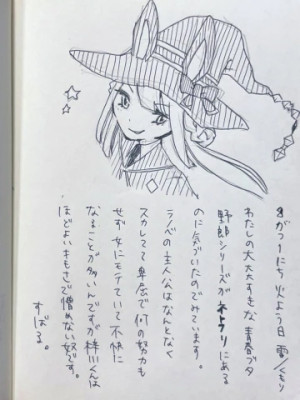 8がつ11にち 火よう日 雨/くもり
わたしの大大大すきな青春ブタ
野郎シリーズがネトフリにある
のに気づいたのでみています。
ラノベの主人公はなんとなく
スカしてて卑屈で何の努力も
せず女にモテていて不快に
なることが多いんですが梓川くんは
ほどよいキモさで憎めない奴です。
すばる。